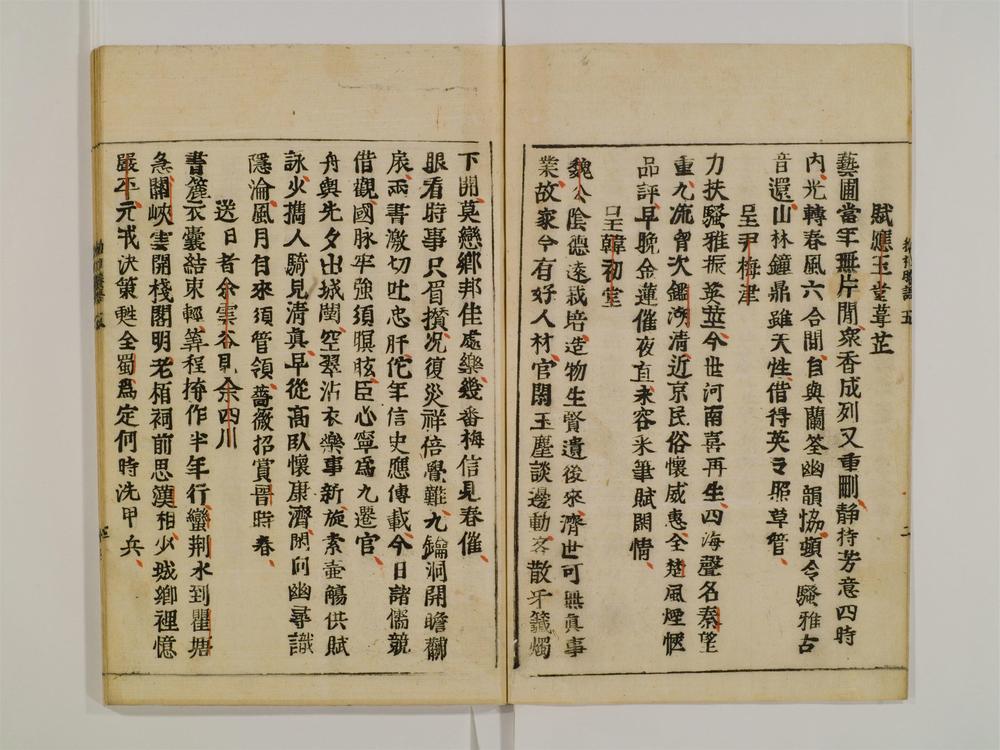 賦應玉堂蓴芷
藝圃當年無片閒衆香成列又重刪靜持芳意四時
內光轉春風六合間自與蘭荃幽韻協頓令騷雅古
音還山林鐘鼎雖天性借得英之照草管
呈尹梅津
力扶騷雅振英莖今世河南喜再生四海聲名秦望
重九流胷次鑑湖清近京民俗懷威惠全楚風煙愜
品評早晚金蓮催夜直未容米筆賦閑情
呈韓初堂
魏公陰德遠栽培造物生賢遺後來濟世可無眞事
業故家今有好人材官閑玉塵談邊動客散牙籤燭
下開莫戀鄉邦佳處樂幾番梅信見春催
眼看時事只眉攢况復災祥倍覺難九鑰洞開瞻黼
扆兩書激切吐忠肝佗年信史應傳載今日諸儒競
借觀國脉牢強須瞑眩臣心寧爲九遷官
舟輿先夕出城闉空翠沾衣樂事新旋索壺觴供賦
詠少攜人騎見清真早從高臥懷康濟閑向幽尋識
隱淪風月自來須管領薔薇招賞晉時春
送日者余雲谷見余四川
書簏衣囊結束輕筭程掎作半年行蠻荆水到瞿塘
急關峽雲開棧閣明老栢祠前思漢相少城鄉裡憶
嚴平元戎決策甦全蜀爲定何時洗甲兵